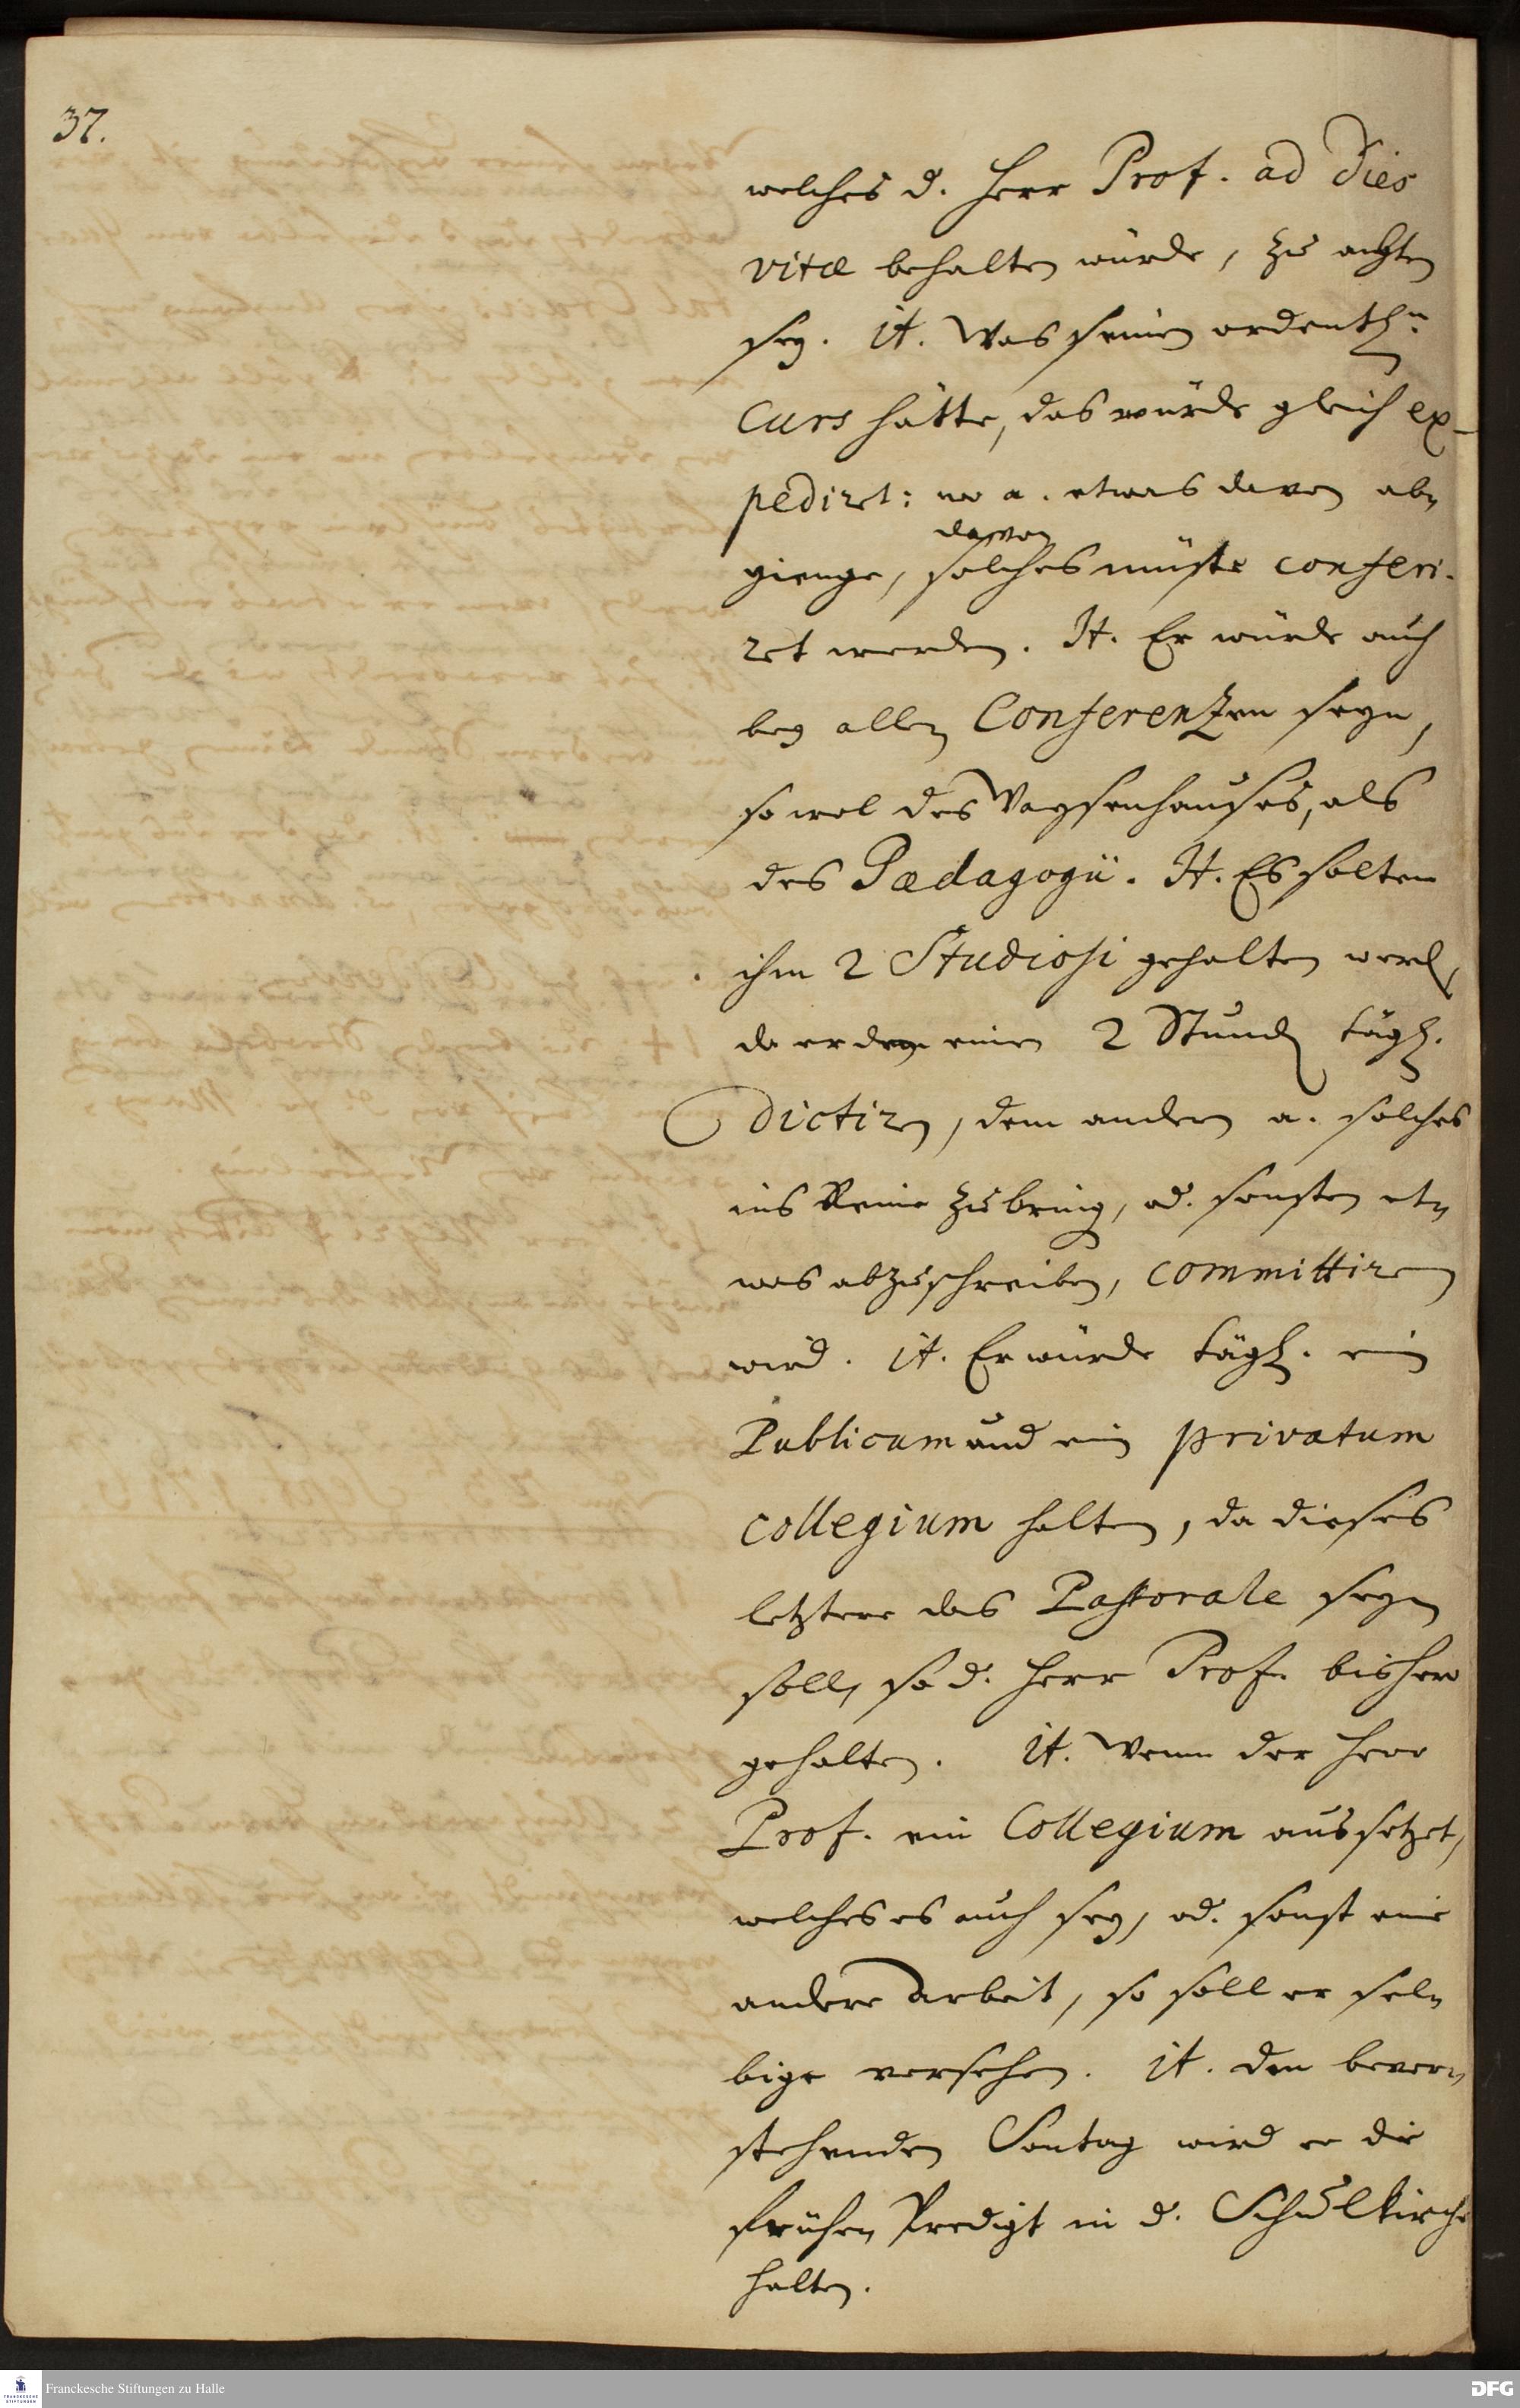 37.
welches d. Herr Prof. ad dies
vitæ behalten würde, zu achten
sey. it. Was seinen ordentl.n
Curs hätte, das würde gleich ex-
pediret: wo a. etwas davon ab-
gienge, solches müste conferi-
davon
ret werden. It. Er würde auch
bey allen Conferentzen seyn,
so wol des Waysenhauses, als
des Pædagogii. It. Es solten
ihm 2 Studiosi gehalten werd,
da er dem einen 2 Stund tägl.
dictiren, dem andern a. solches
ins Reine zu bring, od. sonsten et-
was abzuschreiben, committiren
wird. it. Er würde tägl. ein
Publicum und ein privatum
collegium halten, da dieses
letztere das Pastorale seyn
soll, so d. Herr Prof. bishero
gehalten. it. Wenn der Herr
Prof. ein Collegium aussetzet,
welches es auch sey, od. sonst eine
andere Arbeit, so soll er sel-
bige versehen. it. den bevor-
stehenden Sontag wird er die
frühen Predigt in d. Schulkirche
halten.
Franckesche Stiftungen zu Halle
DFG